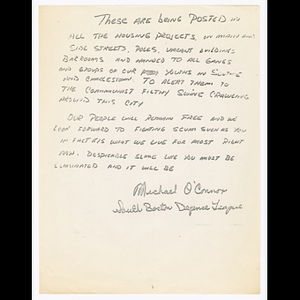 THESE ARE BEING POSTED IN
ALL THE HOUSING PROJECTS, ON MAIN AND
SIDE STREETS, POLES, VACANT BUILDINGS
BARROOMS AND HANDED TO ALL GANGS
AND GROUPS OF OUR YOUTHS IN SOUTHIE
AND CHARLESTOWN TO ALERT THEM TO
THE COMMUNIST FILTHY SLIME CRAWLING
AROUND THIS CITY
OUR PEOPLE WILL REMAIN FREE AND WE
LOOK FORWARD TO FIGHTING SCUM SUCH AS YOU
IN FACT IT IS WHAT WE LIVE FOR MOST RIGHT
NOW. DESPICABLE SLIME LIKE YOU MUST BE
ELIMINATED AND IT WILL BE
Michael O'Connor
South Boston Defense League